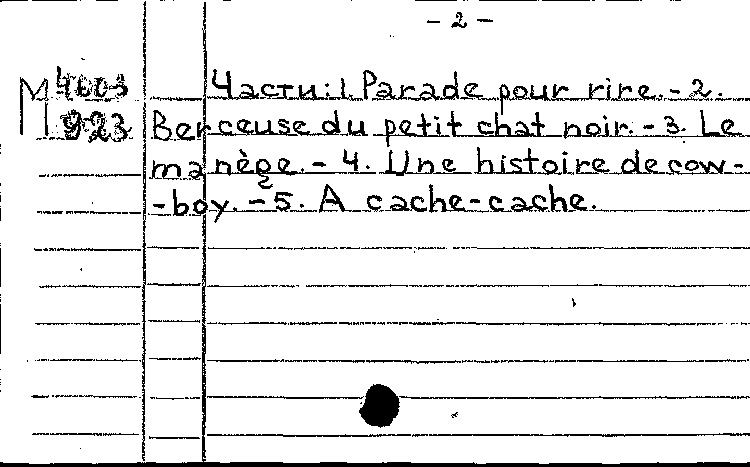 - 2 -
М 4003
923
Части: 1. Parade pour rire. - 2.
Berceuse du petit chat noir. - 3. Le
manège. - 4. Une histoire de cow-
-boy. - 5. A cache-cache.